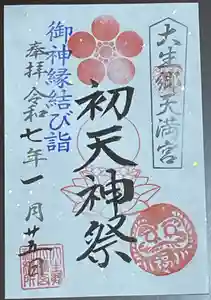 大生郷天満宮
初天神祭
福
御神縁結び詣
奉拝 令和七年一月廿五日